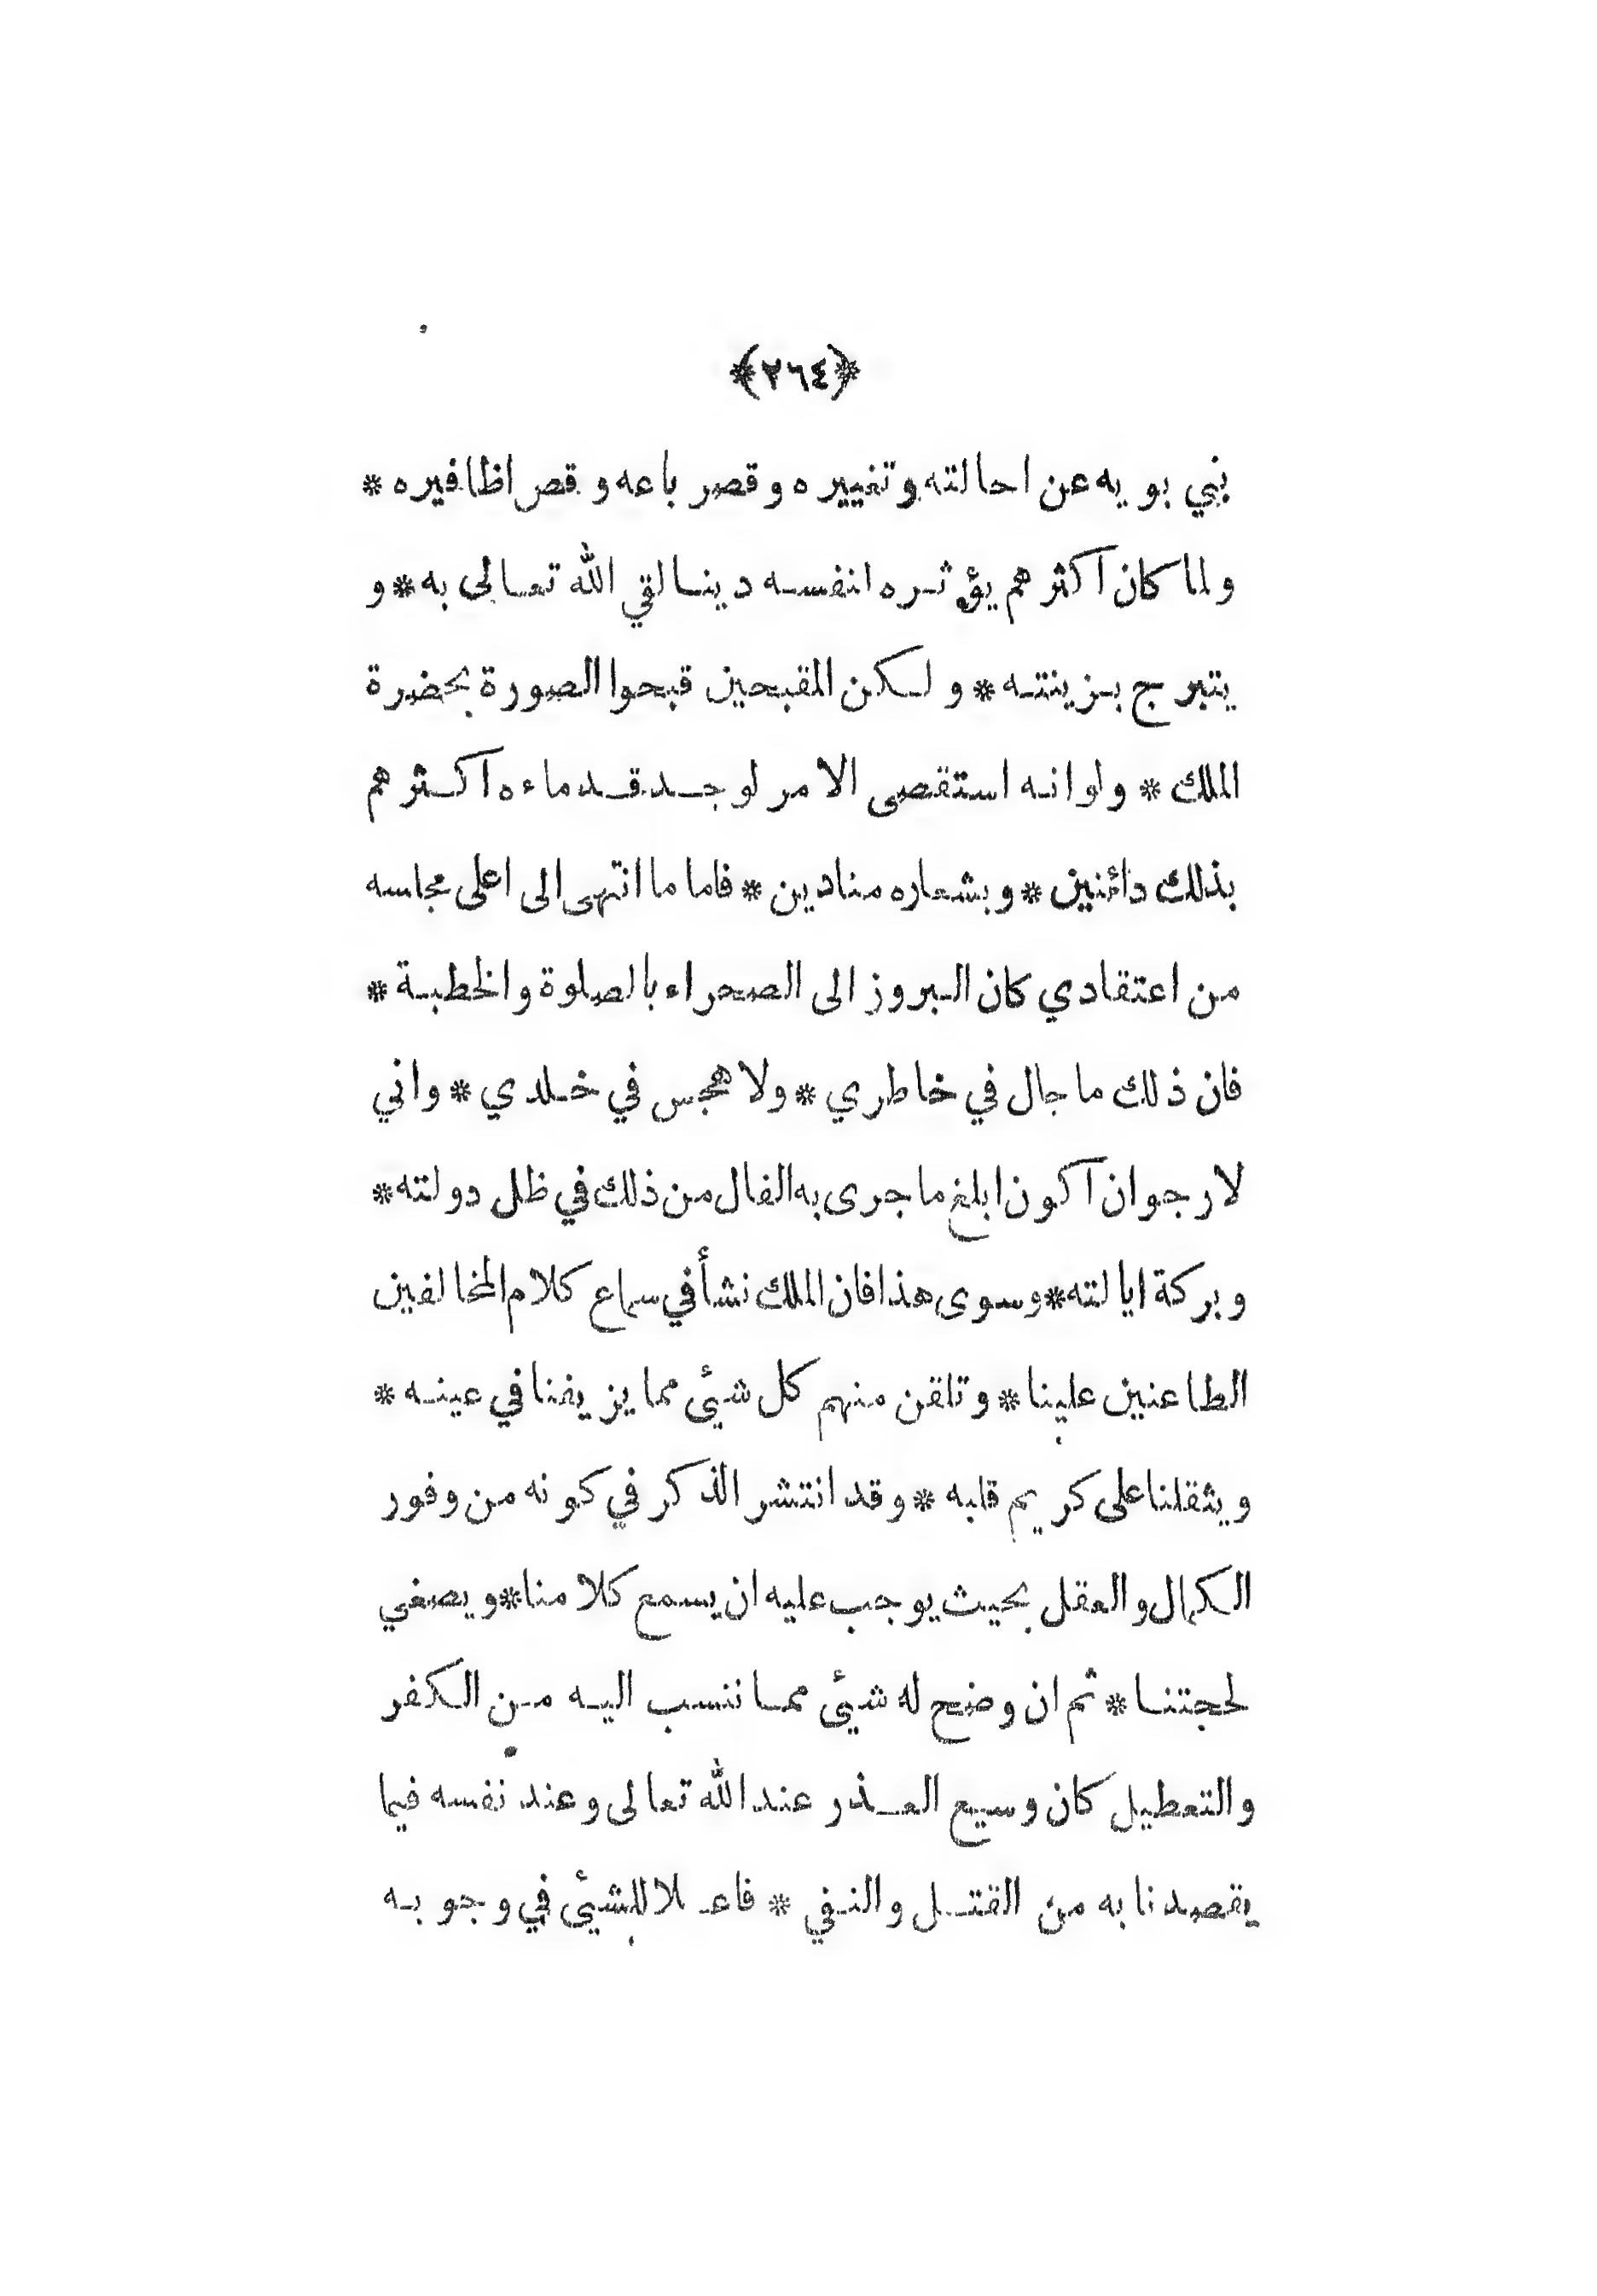 ﴿٢٦٤﴾
بني بويه عن احالته وتغييره وقصر باعه وقص اظافيره *
ولما كان اكثرهم يؤثره انفسه دينا لقي الله تعالى به * و
يتبرج بزينته * ولكن المقبحين قبحوا الصورة بحضرة
الملك * ولو انه استقصى الامر لوجد قدماءه اكثرهم
بذلك دائنين * وبشعاره منادين * فاما ما انتهى الى اعلى مجاسه
من اعتقادي كان البروز الى الصحراء بالصلوة والخطبة *
فان ذلك ما جال في خاطري * ولا هجس في خلدي * واني
لارجو ان اكون ابلغ ما جرى به الفال من ذلك في ظل دولته *
وبركة ايالته * وسوى هذا فان الملك نشأ في سماع كلام المخالفين
الطاعنين علينا * وتلقن منهم كل شيئ مما يزيفنا في عينه *
ويثقلنا على كريم قابه * وقد انتشر الذكر في كونه من وفور
الكمال والعقل بحيث يوجب عليه ان يسمع كلامنا * ويصغي
لحجتنا * ثم ان وضح له شيئ مما ننسب اليه من الكفر
والتعطيل كان وسيع العذر عند الله تعالى وعند نفسه فيما
يقصدنا به من القتل والنفي * فاعلا للشيئ في وجوبه